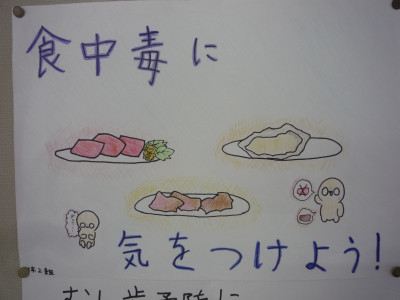 食中毒に
気をつけよう!
むし歯予防に